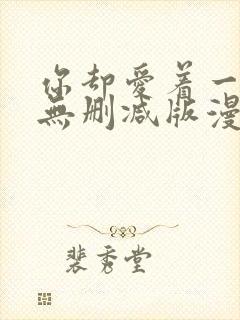 你却爱着一
無删减版漫
裴秀堂